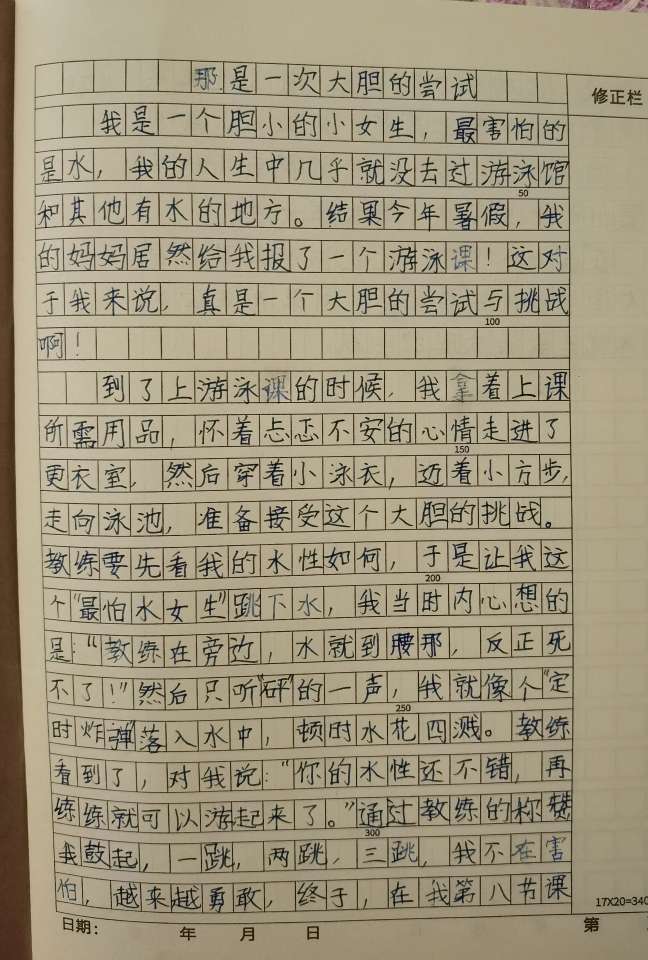 那是一次大胆的尝试
修正栏
我是一个胆小的小女生，最害怕的
是水，我的人生中几乎就没去过游泳馆
50
和其他有水的地方。结果今年暑假，我
的妈妈居然给我报了一个游泳课！这对
于我来说，真是一个大胆的尝试与挑战
100
啊！
到了上游泳课的时候，我拿着上课
所需用品，怀着忐忑不安的心情走进了
150
更衣室，然后穿着小泳衣，迈着小方步，
走向泳池，准备接受这个大胆的挑战。
教练要先看我的水性如何，于是让我这
200
个“最怕水女生”跳下水，我当时内心想的
是：“教练在旁近，水就到腰那，反正死
不了！”然后只听“砰”的一声，我就像个“定
250
时炸弹”落入水中，顿时水花四溅。教练
看到了，对我说：“你的水性还不错，再
练练就可以游起来了。”通过教练的称赞
300
我鼓起，一跳，两跳，三跳，我不在害
怕，越来越勇敢，终于，在我第八节课
17X20=340
日期： 年 月 日 第